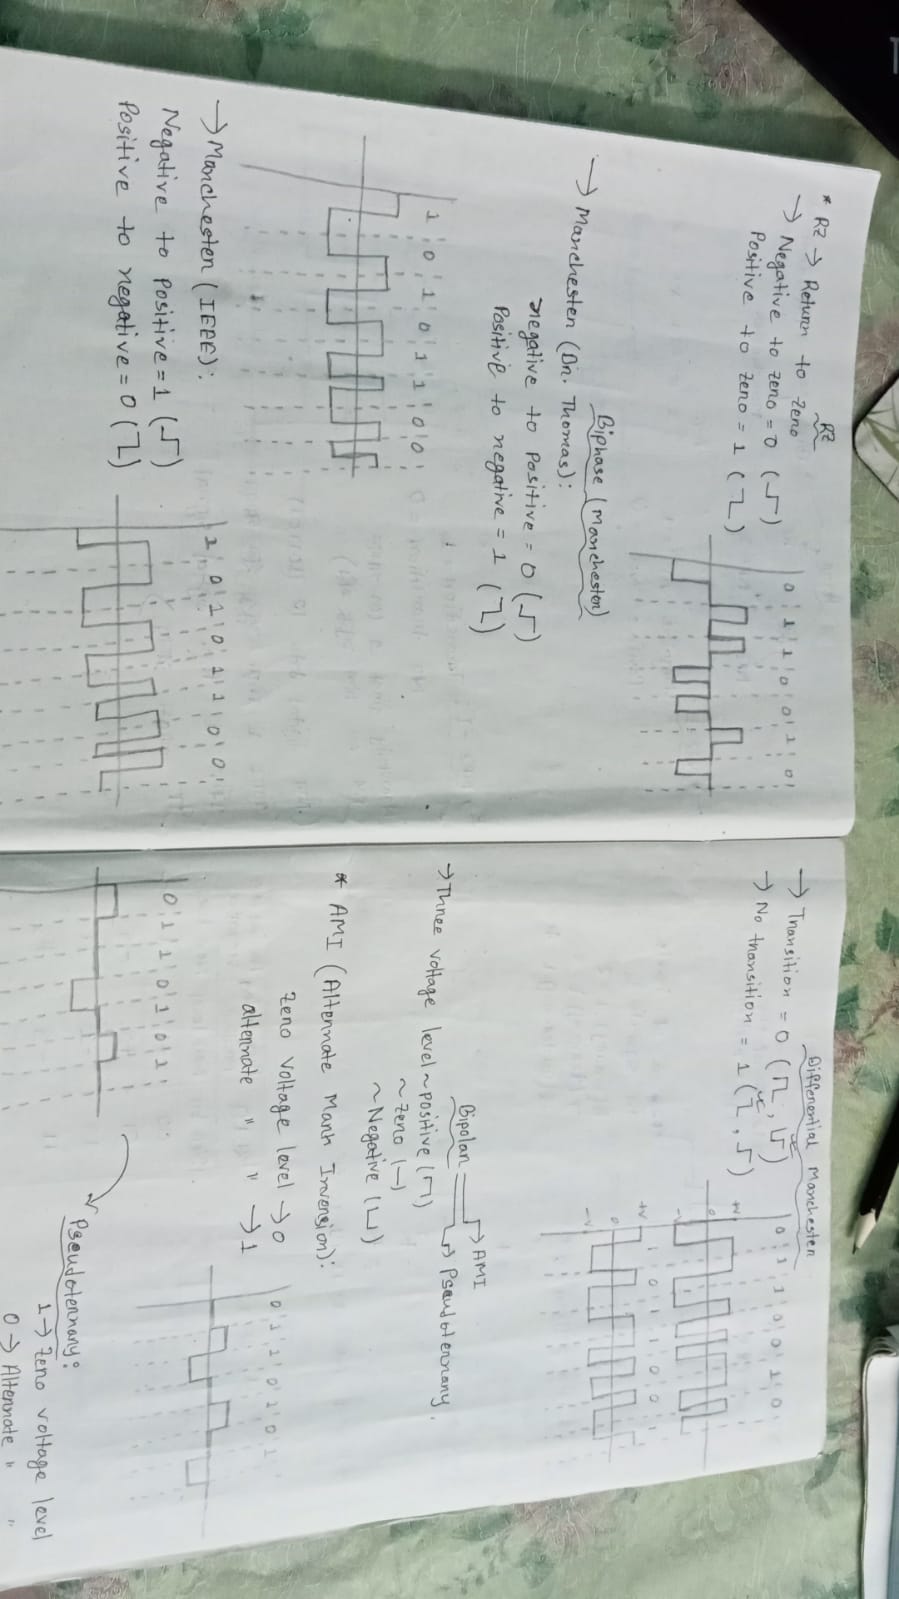 RZ
* RZ → Return to Zero
→ Negative to zero = 0 ( )
Positive to zero = 1 ( )
0 1 1 0 0 1 0
Biphase (Manchester)
→ Manchester (Dr. Thomas):
negative to Positive = 0 ( )
Positive to negative = 1 ( )
1 0 1 0 1 1 0 0
→ Manchester (IEEE):
Negative to positive = 1 ( )
Positive to negative = 0 ( )
1 0 1 0 1 1 0 0
Differential Manchester
→ Transition = 0 ( , )
→ No transition = 1 ( , )
0 1 1 0 0 1 0
+v
0
-v
1 0 1 1 0 0 1
+v
0
-v
Bipolar → AMI
→ Pseudoternary.
→ Three voltage level ~ positive ( )
~ Zero (—)
~ Negative ( )
* AMI (Alternate Mark Inversion):
Zero voltage level → 0
alternate " " → 1
0 1 1 0 1 0 1
0 1 1 0 1 0 1
Pseudoternary:
1 → Zero voltage level
0 → Alternate " "